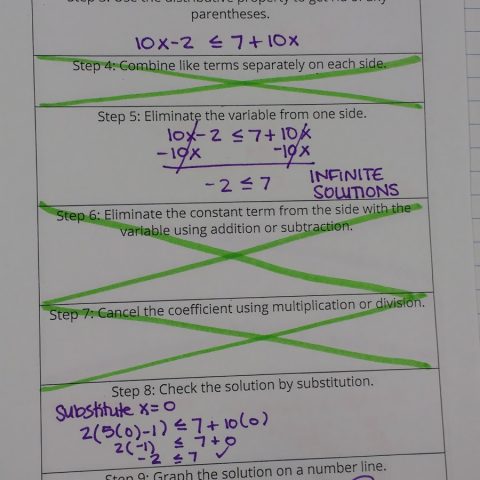 Step 3: Use the distributive property to get rid of any
parentheses.
10x-2 ≤ 7+10x
Step 4: Combine like terms separately on each side.
Step 5: Eliminate the variable from one side.
10x-2 ≤ 7+10x
-10x -10x
-2 ≤ 7 INFINITE
SOLUTIONS
Step 6: Eliminate the constant term from the side with the
variable using addition or subtraction.
Step 7: Cancel the coefficient using multiplication or division.
Step 8: Check the solution by substitution.
Substitute x=0
2(5(0)-1) ≤ 7+10(0)
2(-1) ≤ 7+0
-2 ≤ 7 ✓
Step 9: Graph the solution on a number line.